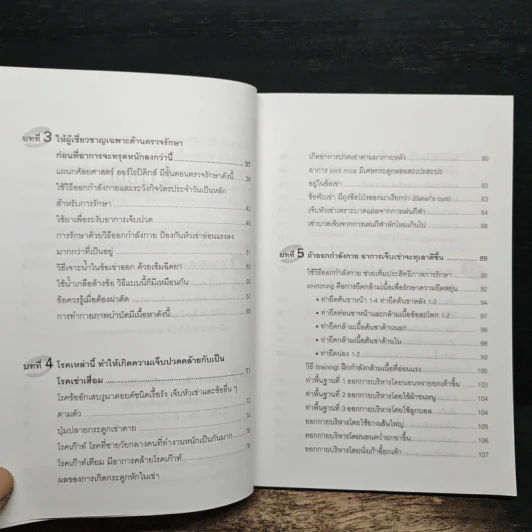 บทที่ 3 ให้ผู้เชี่ยวชาญเฉพาะด้านตรวจรักษา
ก่อนที่อาการจะทรุดหนักลงกว่านี้ 37
แผนกศัลยศาสตร์ ออร์โธปิดิกส์ มีขั้นตอนตรวจรักษาดังนี้
ใช้วิธีออกกำลังกายและระวังกิจวัตรประจำวันเป็นหลัก
สำหรับการรักษา
ใช้ยาเพื่อระงับอาการเจ็บปวด
การรักษาด้วยวิธีออกกำลังกาย ป้องกันหัวเข่าอ่อนแรงลง
มากกว่าที่เป็นอยู่
วิธีเจาะน้ำในข้อเข่าออก ด้วยเข็มฉีดยา
ใช้น้ำเกลือล้างข้อ วิธีแบบนี้ก็มีเหมือนกัน
ข้อควรรู้เมื่อต้องผ่าตัด
การทำกายภาพบำบัดมีเนื้อหาดังนี้
บทที่ 4 โรคเหล่านี้ ทำให้เกิดความเจ็บปวดคล้ายกับเป็น
โรคเข่าเสื่อม 71
โรคข้ออักเสบรูมาตอยด์ชนิดเรื้อรัง เจ็บหัวเข่าและข้ออื่น ๆ
ตามตัว
ปุ่มปลายกระดูกเข่าตาย
โรคเก๊าท์ โรคที่ชายวัยกลางคนที่ทำงานหนักเป็นกันมาก
โรคเก๊าท์เทียม มีอาการคล้ายโรคเก๊าท์
ผลของการเกิดกระดูกหักในเข่า
เกิดอาการปวดเข่าตามมาภายหลัง 80
อาการ joint mice มีเศษกระดูกลอยสะเปะสะปะ
อยู่ในข้อเข่า
ข้อพับเข่า มีถุงซีสโป่งออกมาเรียกว่า (Baker's cyst)
เจ็บหัวเข่าเพราะบาดแผลจากการเล่นกีฬา
เข่าบาดเจ็บจากการเล่นกีฬาหักโหมเกินไป
บทที่ 5 ถ้าออกกำลังกาย อาการเจ็บเข่าจะทุเลาดีขึ้น 89
ใช้วิธีออกกำลังกาย ช่วยเพิ่มประสิทธิภาพการรักษา 90
stretching คือการยืดกล้ามเนื้อเพื่อรักษาความยืดหยุ่น 92
• ท่ายืดต้นขาหน้า 1-4 ท่ายืดต้นขาหลัง 1-2
• ท่ายืดท่อนขาหน้าและกล้ามเนื้อข้อสะโพก 1-2
• ท่ายืดกล้ามเนื้อต้นขาด้านนอก
• ท่ายืดกล้ามเนื้อต้นขาด้านใน
• ท่ายืดน่อง 1-2
วิธี (training) ฝึกกำลังกล้ามเนื้อที่อ่อนแรง
ท่าพื้นฐานที่ 1 ออกกายบริหารโดยนอนหงายยกเท้าขึ้น
ท่าพื้นฐานที่ 2 ออกกายบริหารโดยใช้ผ้าขนหนู 103
ท่าพื้นฐานที่ 3 ออกกายบริหารโดยใช้ลูกบอล 104
ออกกายบริหารโดยใช้ยางเส้นใหญ่
ออกกายบริหารโดยนอนคว่ำยกขาขึ้น 106
ออกกายบริหารโดยนั่งเก้าอี้ยกเท้า 107